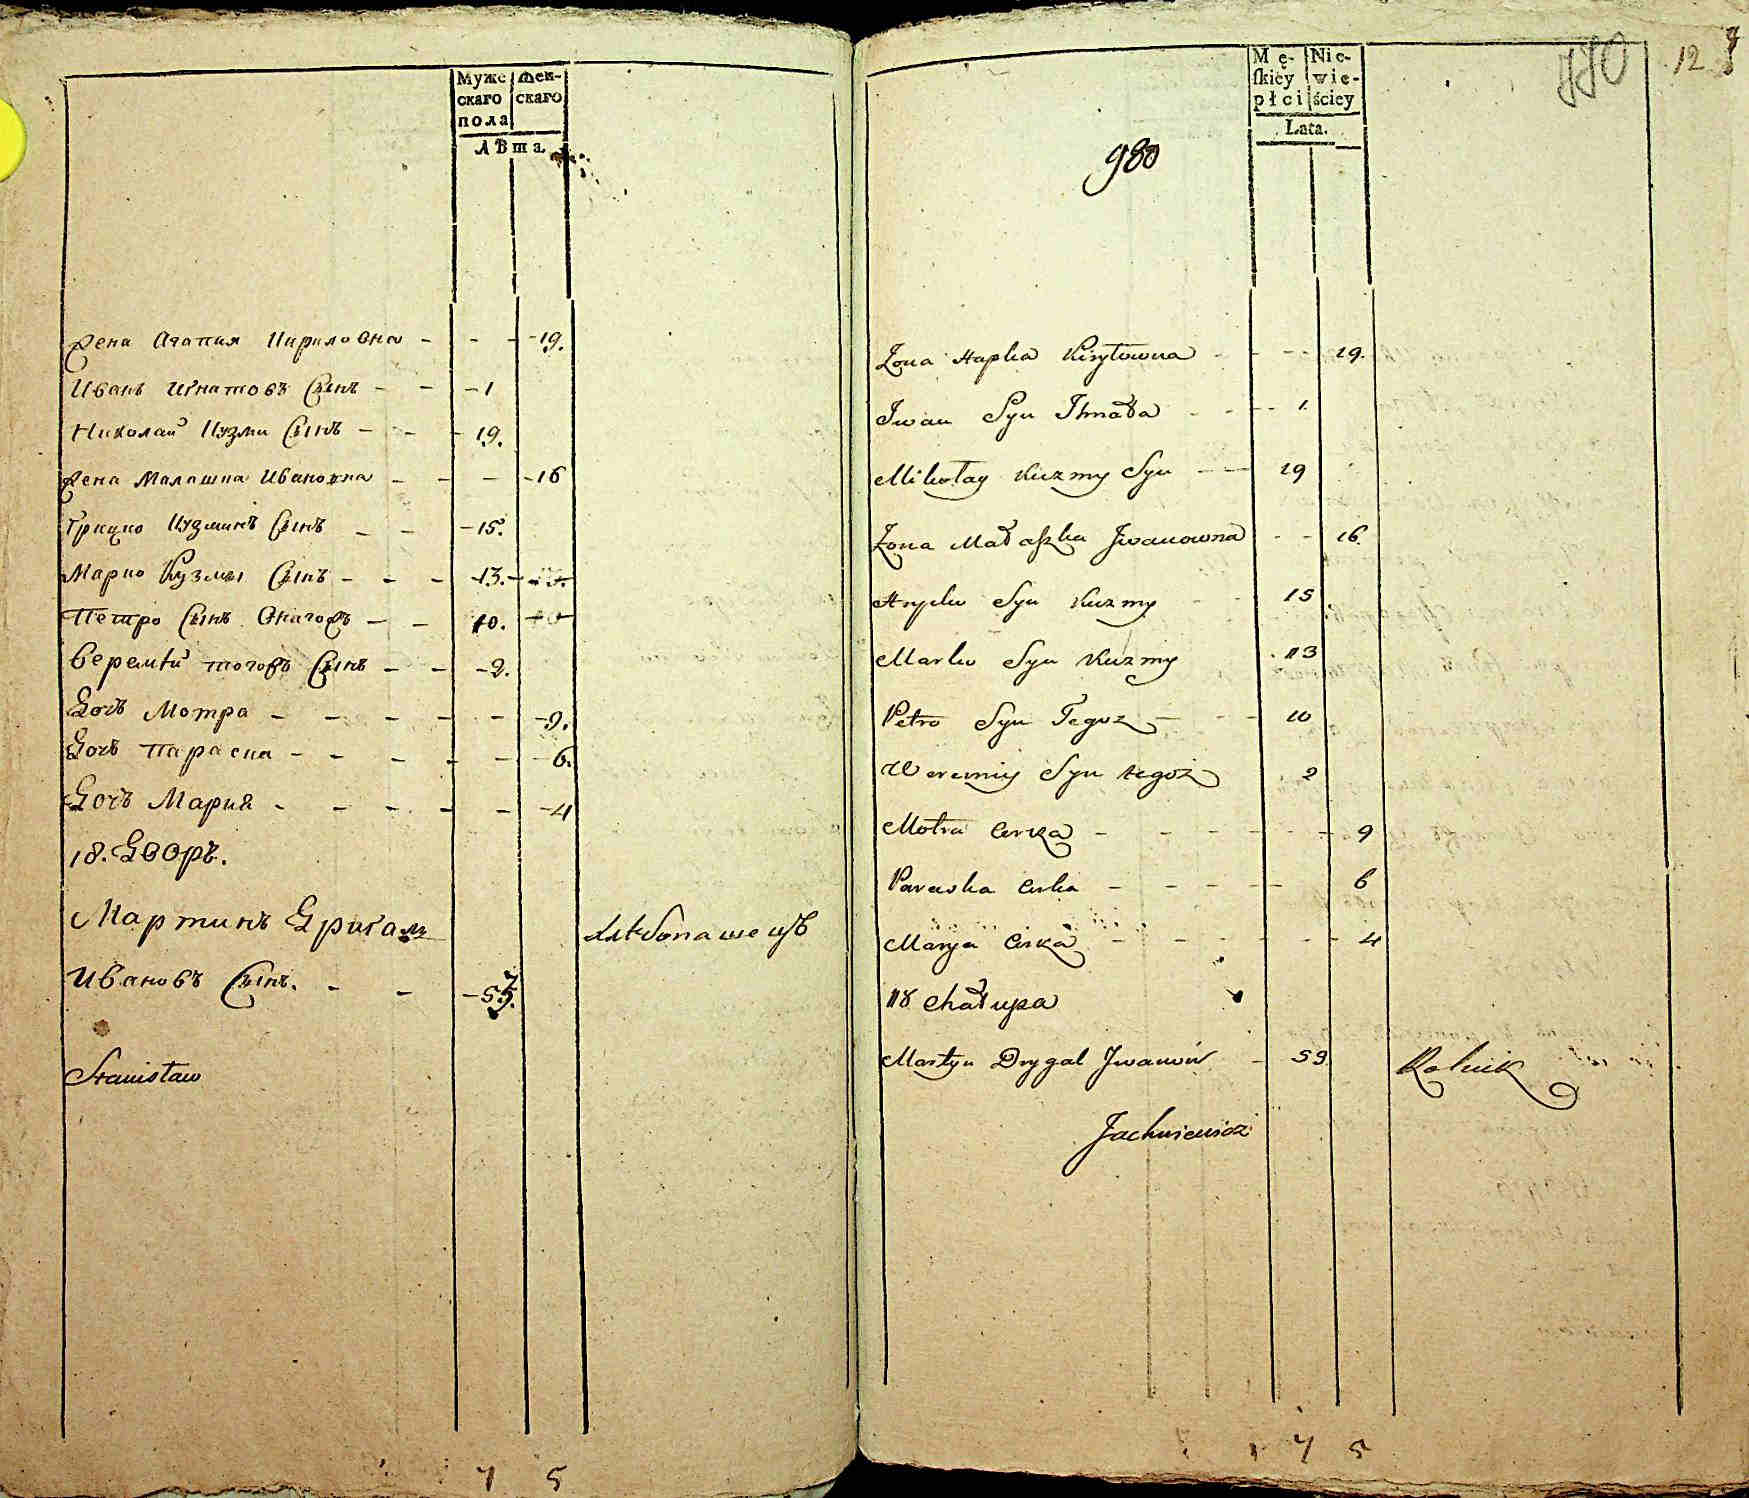 Муже
скаго
пола
жен-
скаго
лѣта.
Жена Агапия Кириловна - - - -19.
Иванъ Игнатовъ Сынъ - - -1
Николай Кузми Сынъ - - - 19.
Жена Малашка Ивановна - - - -16
Грицко Кузминъ Сынъ - - -15.
Марко Кузмы Сынъ - - - -13.
Петро Сынъ Онагожъ - - 10.
Веремѣй тогожъ Сынъ - - -2.
Дочь Мотра - - - - - -9.
Дочь Параска - - - - - 6.
Дочь Мария - - - - - -4
18. Дворъ.
Мартинъ Дригаль
Хлѣбопашецъ
Ивановъ Сынъ. - - -57.
Stanisław
7 5
Mę-
skiey
płci
Nie-
wie-
ściey
Lata.
980
12
Żona Hapka Kiryłowna - - - - 19.
Iwan Syn Ihnata - - - 1.
Mikołay Kuzmy Syn - - 19
Żona Małaszka Iwanowna - - 16.
Hryćko Syn Kuzmy - - 15
Marko Syn Kuzmy 13
Petro Syn Tegoz - - - 10
Weremiy Syn tegoż 2
Motra Corka - - - - - - 9
Paraska Corka - - - - - 6
Marya Corka - - - - - - 4
18 Chałupa
Martyn Drygal Iwanów - 59.
Rolnik
Jachniewicz
7 5